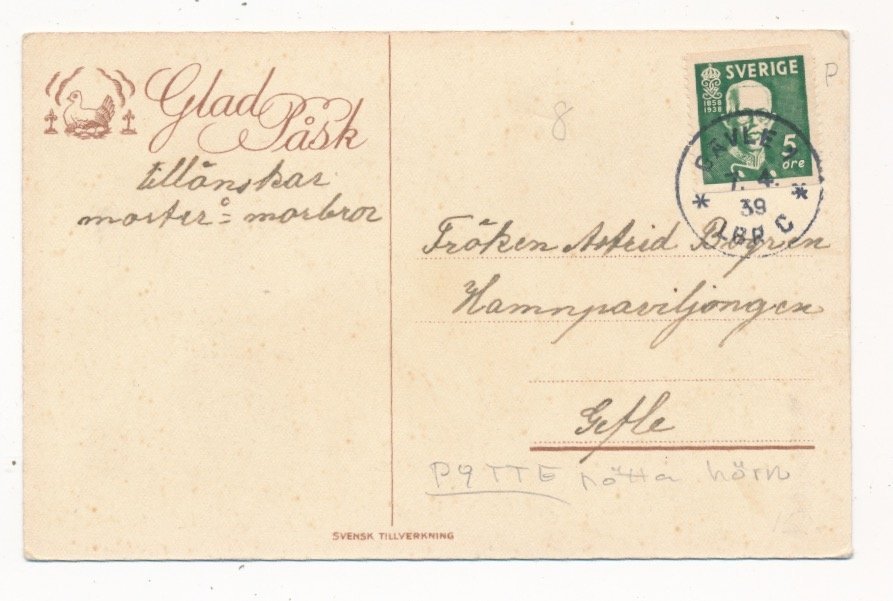 Glad
Påsk
tillönskar
moster å morbror
SVERIGE
1858
1938
5
öre
GÄVLE 1
7. 4.
39
LBR C
P
8
Fröken Astrid
Hamnpaviljongen
Gefle
PYTTE nötta hörn
SVENSK TILLVERKNING